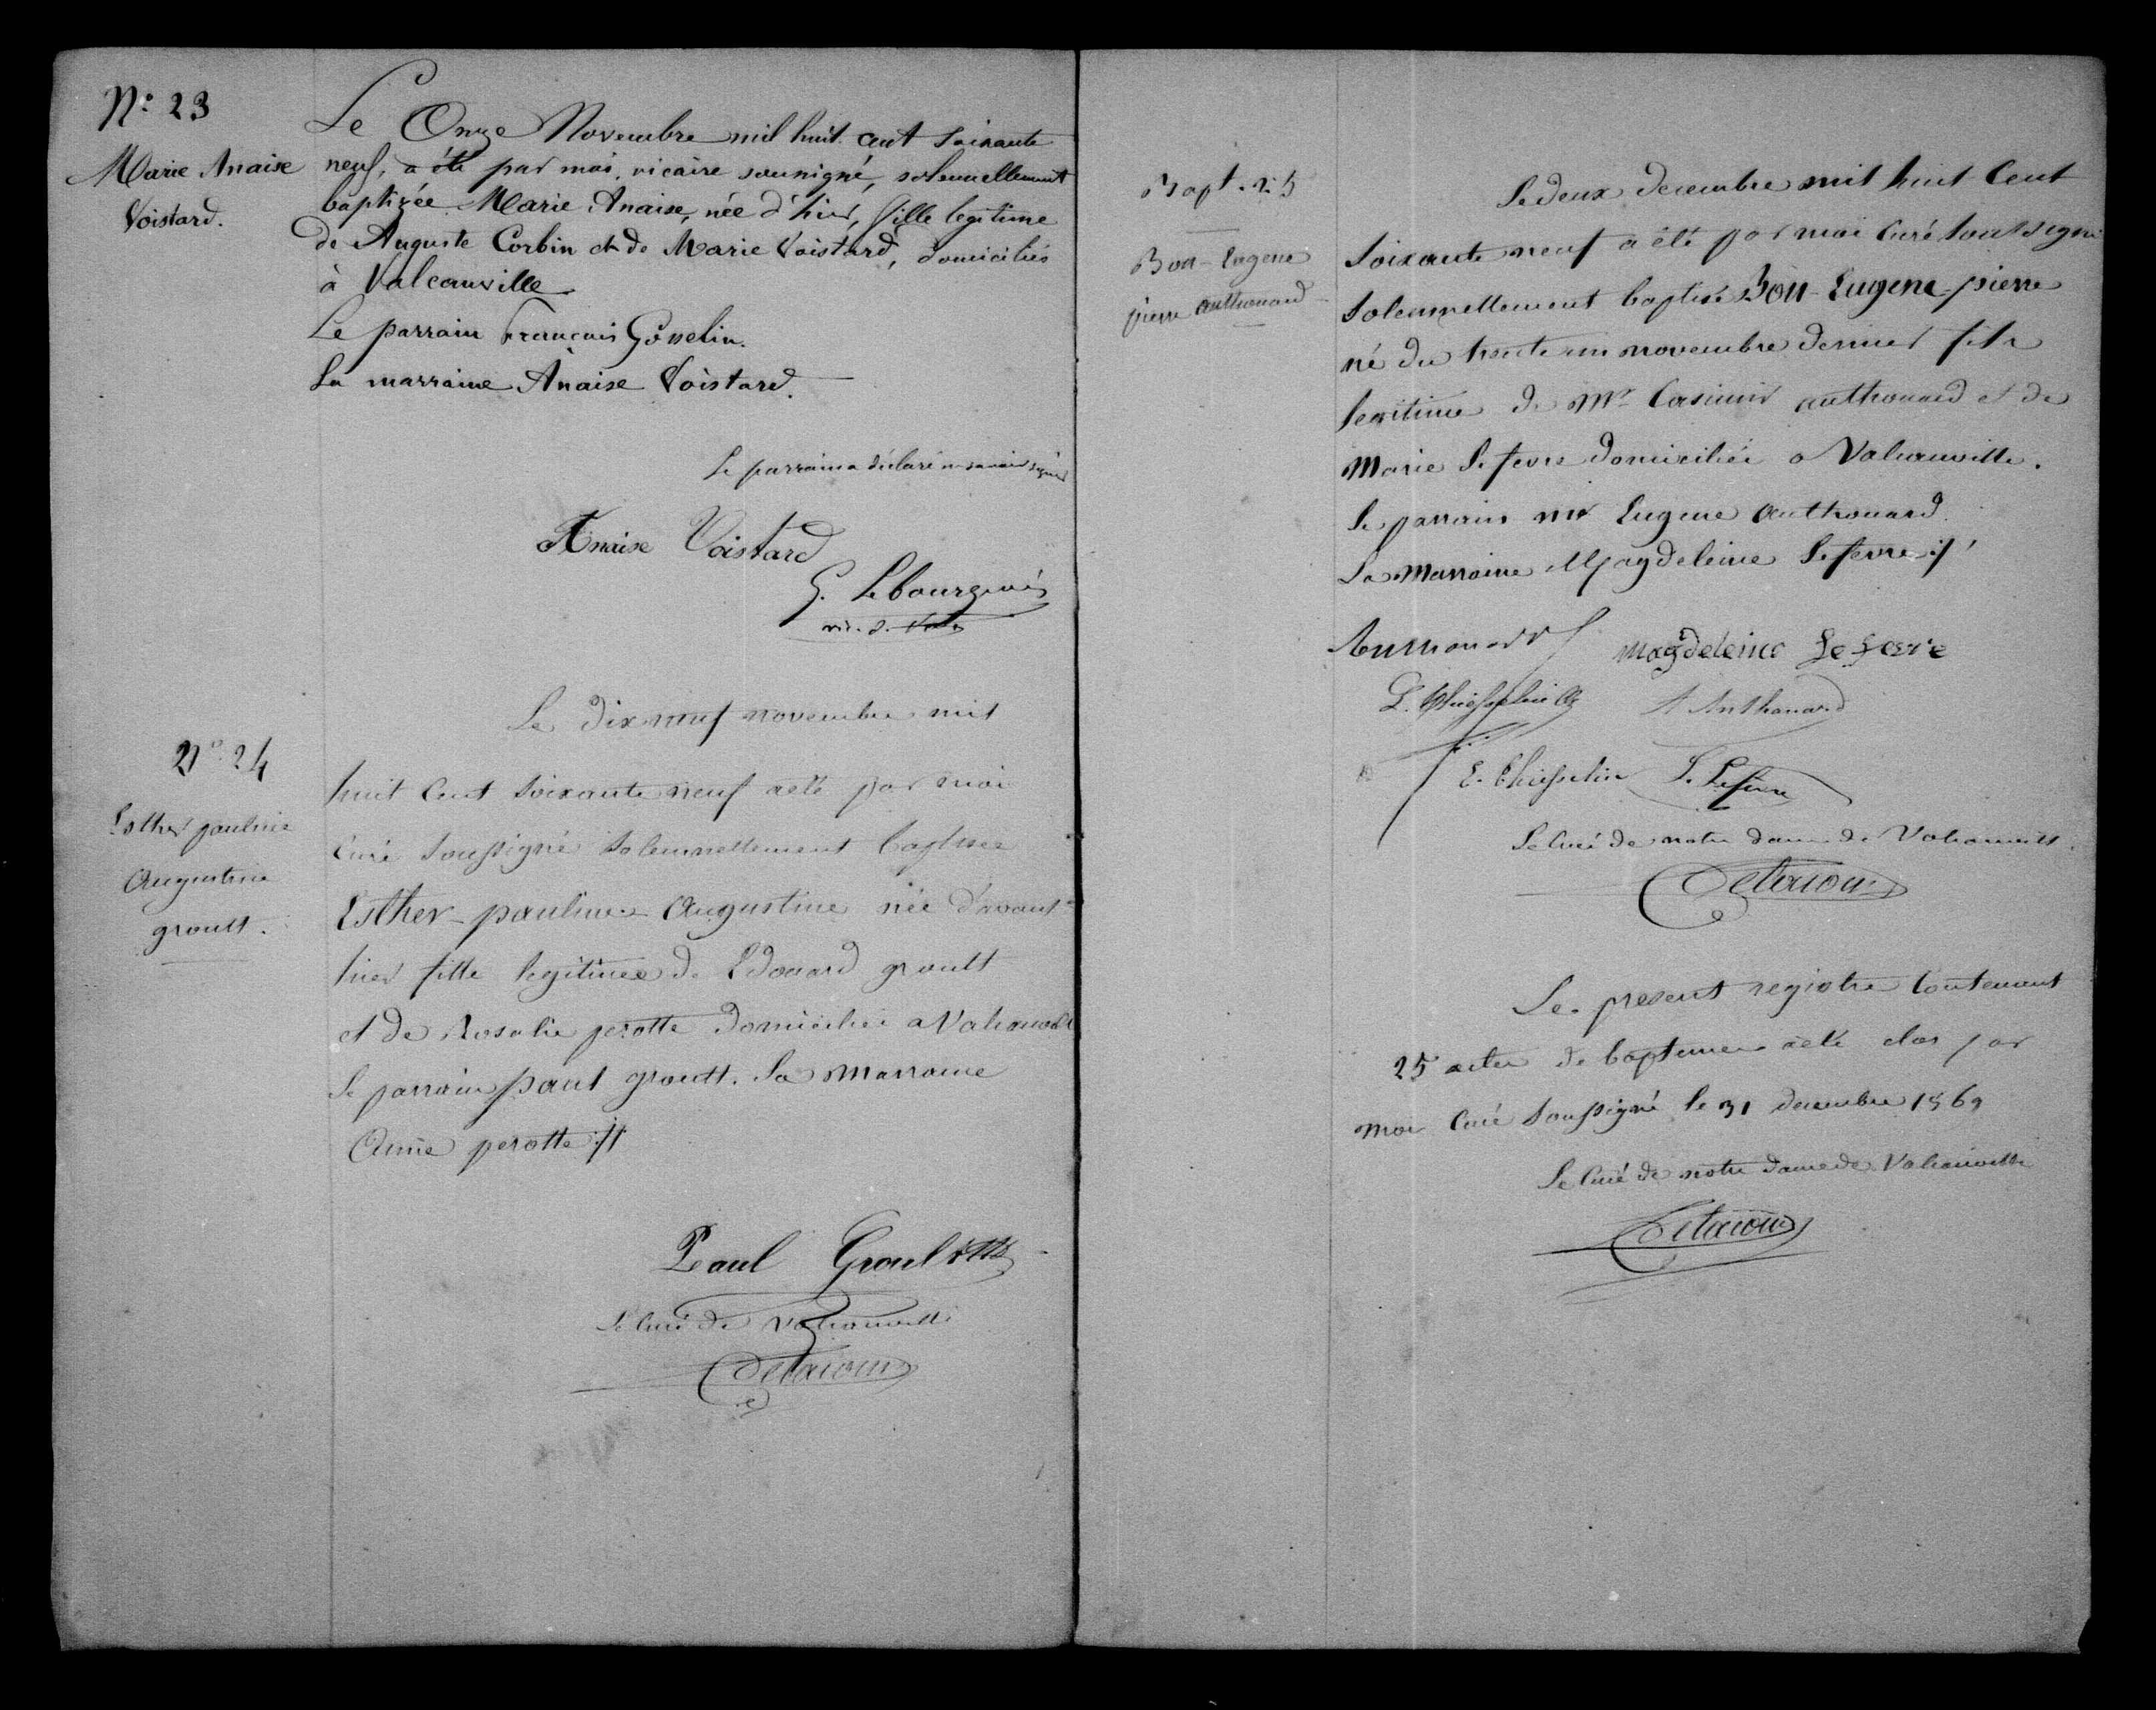 N° 23
Marie Anaise
Voistard.
Le Onze Novembre mil huit cent soixante
neuf, a été par moi, vicaire soussigné, solennellement
baptisée Marie Anaise, née d'hier, fille legitime
de Auguste Corbin et de Marie Voistard, domiciliés
à Valcanville
Le parrain François Gosselin.
La marraine Anaise Voistard.
Le parrain a déclaré ne savoir signer
Anaise Voistard
G. Lebourgeois
vic. d.
N° 24
Esther pauline
Augustine
groult.
Le dix neuf novembre mil
huit Cent soixante neuf a été par moi
Curé soussigné solennellement baptisée
Esther-pauline-Augustine née d'avant-
hier fille legitime de Edouard groult
et de Rosalie perotte domiciliée a Valcanville
le parrain paul groult. La Marraine
Aimé perotte ://
Paul Groult
le Curé de Valcanville
Bapt. 25
Bon-Eugene
pierre authouard
Le deux decembre mil huit Cent
soixante neuf a été par moi Curé soussigné
solennellement baptisé Bon-Eugene-pierre
né du trente un novembre dernier fils
legitime de Mr Casimir authouard et de
Marie Lefevre domiciliée a Valcanville.
le parrain mr Eugene authouard
La Marraine Magdeleine Lefevre :/
Authouard Magdeleine Lefevre
A Authouard
L. Lefevre
Le Curé de notre dame de Valcanville
Le present registre Contenant
25 actes de baptemes a été clos par
moi Curé soussigné le 31 decembre 1869
Le Curé de notre dame de Valcanville